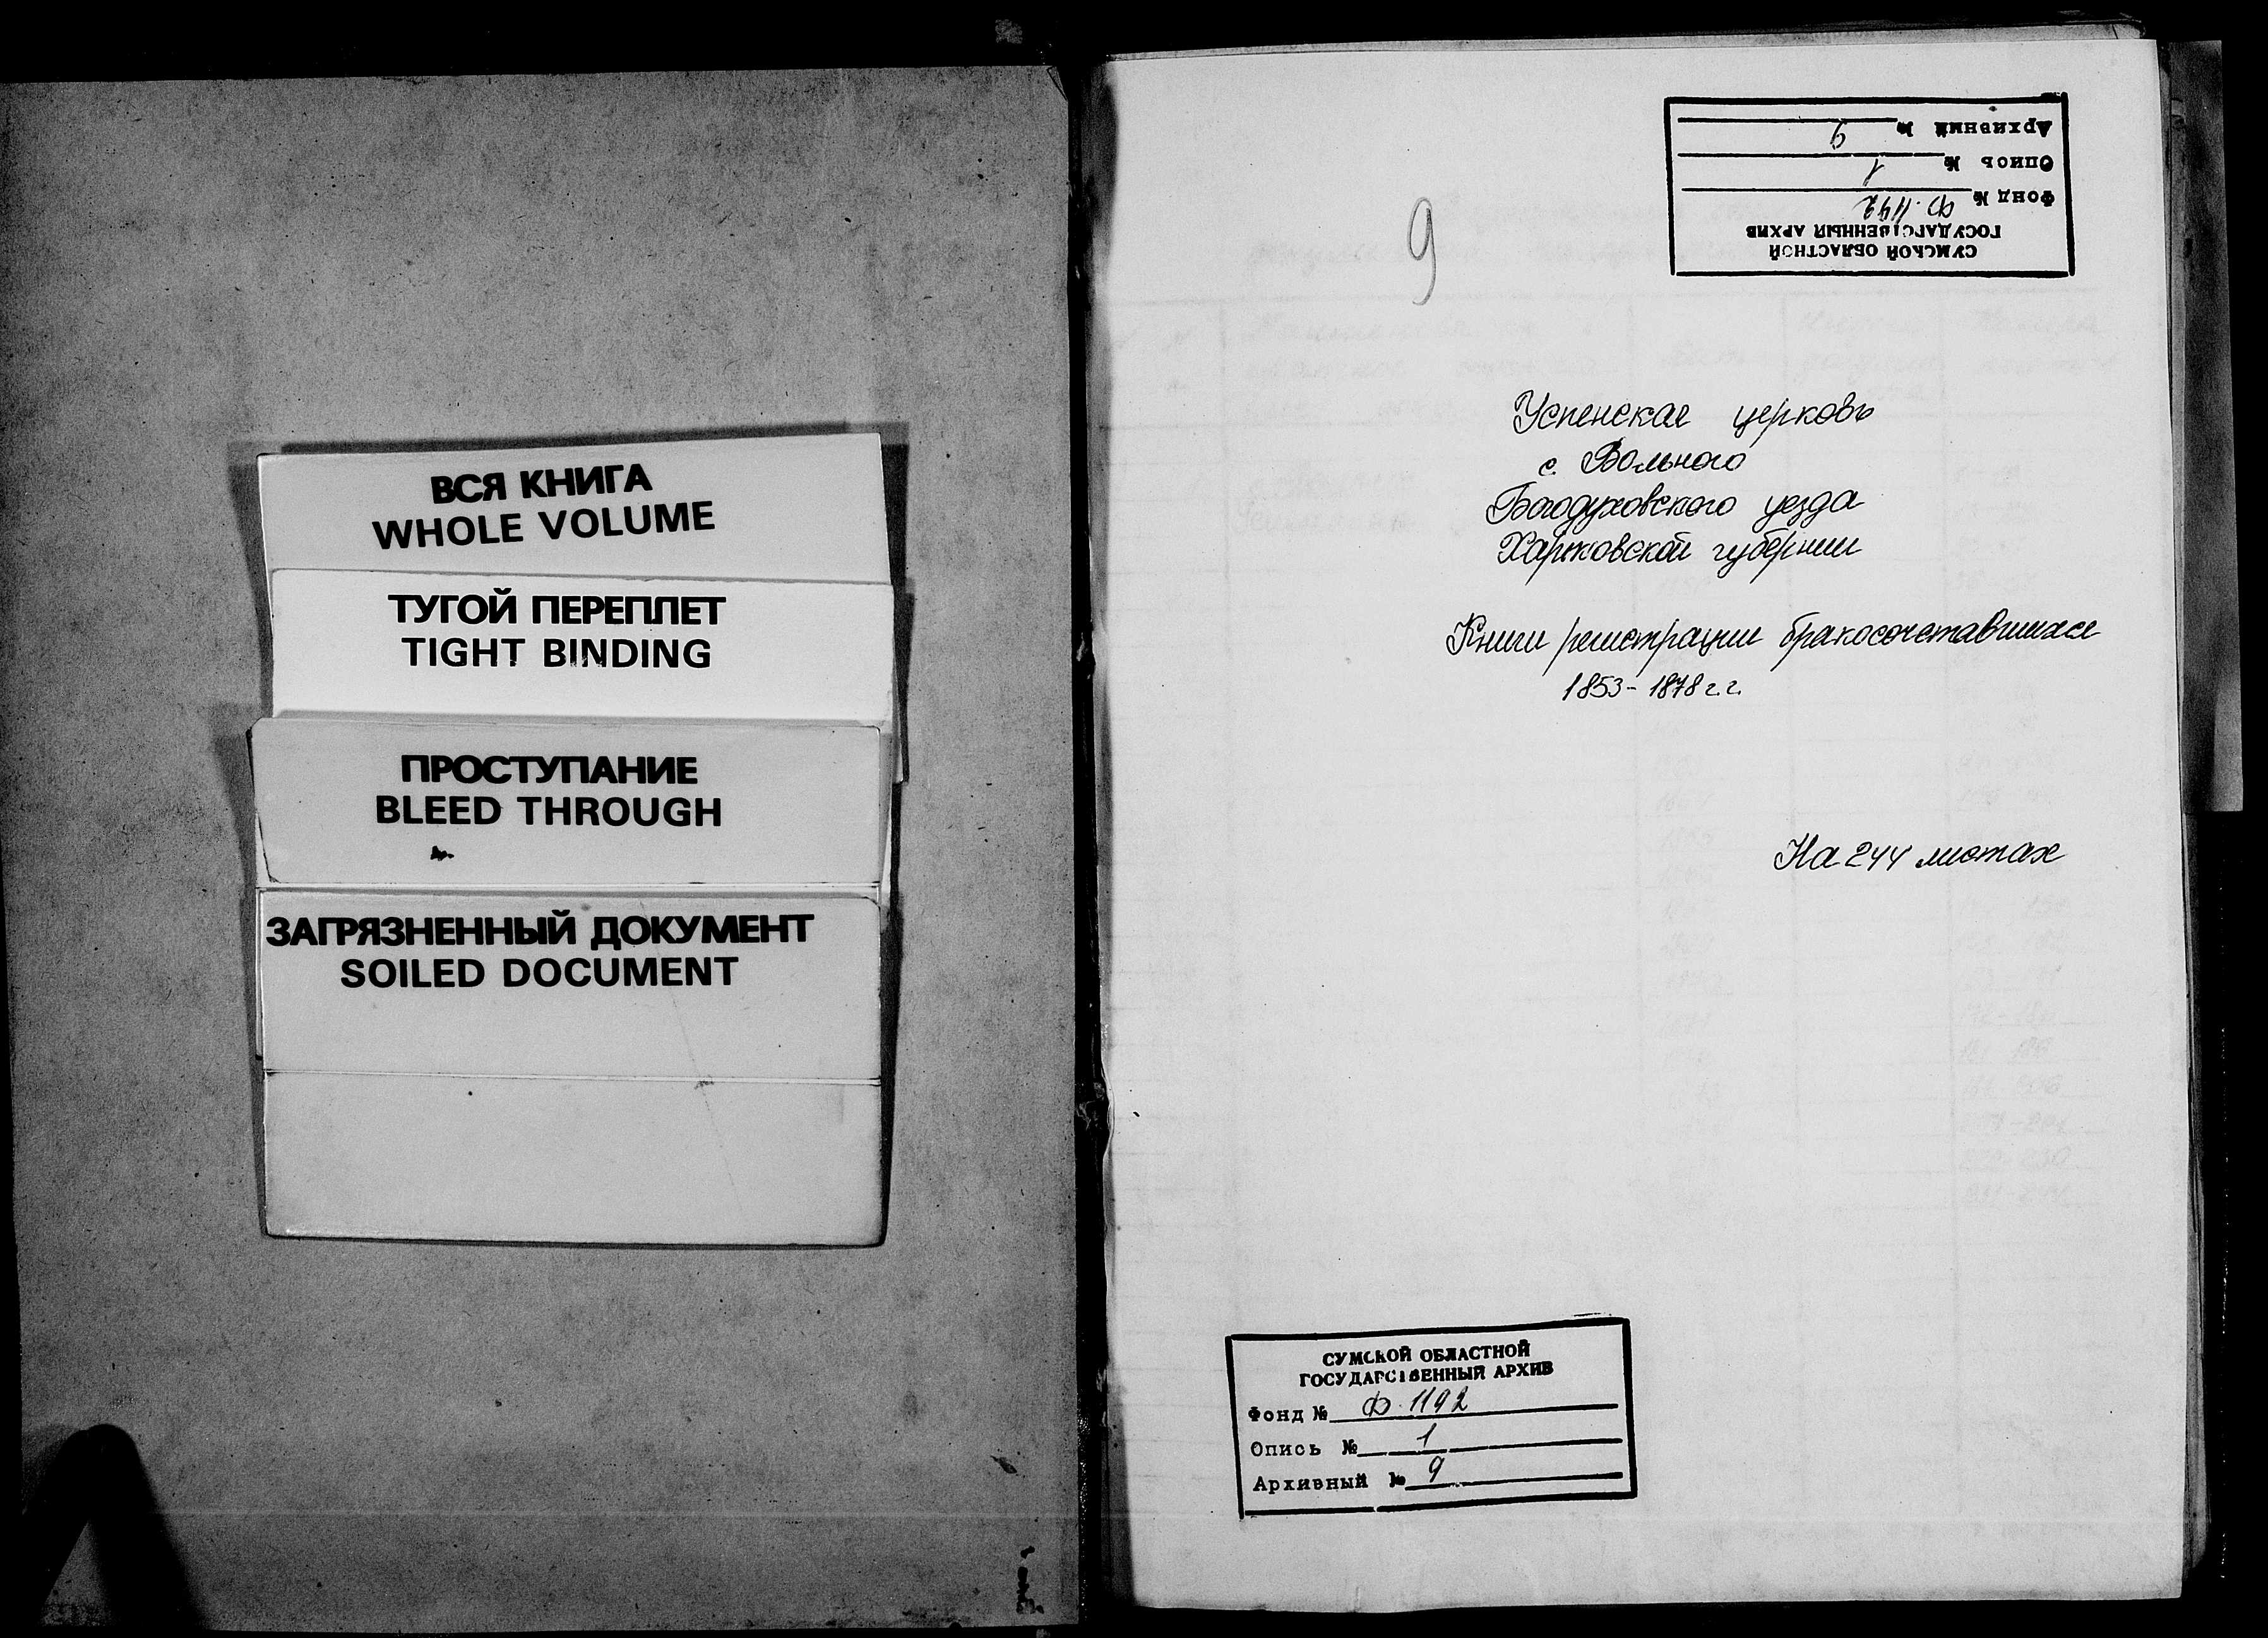 ВСЯ КНИГА
WHOLE VOLUME
ТУГОЙ ПЕРЕПЛЕТ
TIGHT BINDING
ПРОСТУПАНИЕ
BLEED THROUGH
ЗАГРЯЗНЕННЫЙ ДОКУМЕНТ
SOILED DOCUMENT
СУМСКОЙ ОБЛАСТНОЙ
ГОСУДАРСТВЕННЫЙ АРХИВ
Фонд № Ф. 1192
Опись № 1
Архивный № 9
9
Успенская церковь
с. Вольного
Богодуховского уезда
Харьковской губернии
Книги регистрации бракосочетавшихся
1853-1878 г.г.
На 244 листах
СУМСКОЙ ОБЛАСТНОЙ
ГОСУДАРСТВЕННЫЙ АРХИВ
Фонд № Ф. 1192
Опись № 1
Архивный № 9